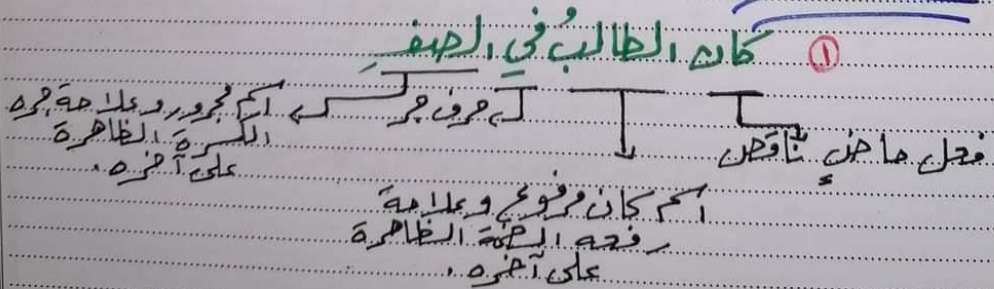 ① كان الطالبُ في الصفِ
فعل ماضٍ ناقص
اسم كان مرفوع وعلامة
رفعه الضمة الظاهرة
على آخره .
حرف جر
اسم مجرور وعلامة جره
الكسرة الظاهرة
على آخره .